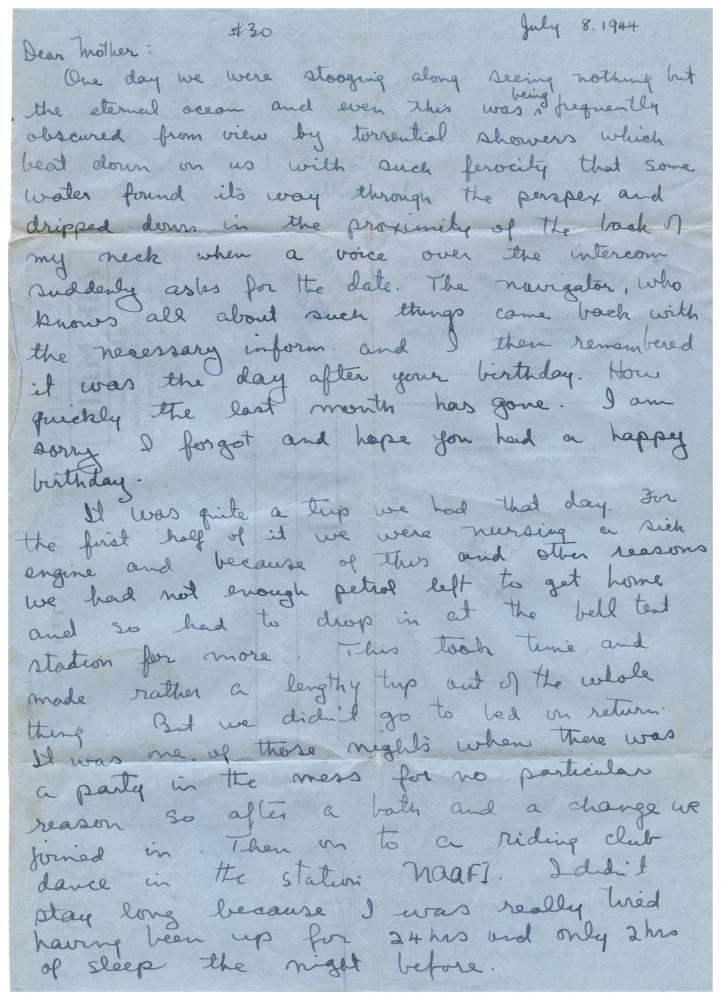 #30 July 8. 1944
Dear Mother:
One day we were stooging along seeing nothing but
the eternal ocean and even this was being frequently
obscured from view by torrential showers which
beat down on us with such ferocity that some
water found its way through the perspex and
dripped down in the proximity of the back of
my neck when a voice over the intercom
suddenly asks for the date. The navigator, who
knows all about such things came back with
the necessary inform. and I then remembered
it was the day after your birthday. How
quickly the last month has gone. I am
sorry I forgot and hope you had a happy
birthday.
It was quite a trip we had that day. For
the first half of it we were nursing a sick
engine and because of this and other reasons
we had not enough petrol left to get home
and so had to drop in at the bell tent
station for more. This took time and
made rather a lengthy trip out of the whole
thing. But we didn't go to bed on return.
It was one of those nights when there was
a party in the mess for no particular
reason so after a bath and a change we
joined in. Then on to a riding club
dance in the station NAAFI. I didn't
stay long because I was really tired
having been up for 24 hrs and only 2 hrs
of sleep the night before.